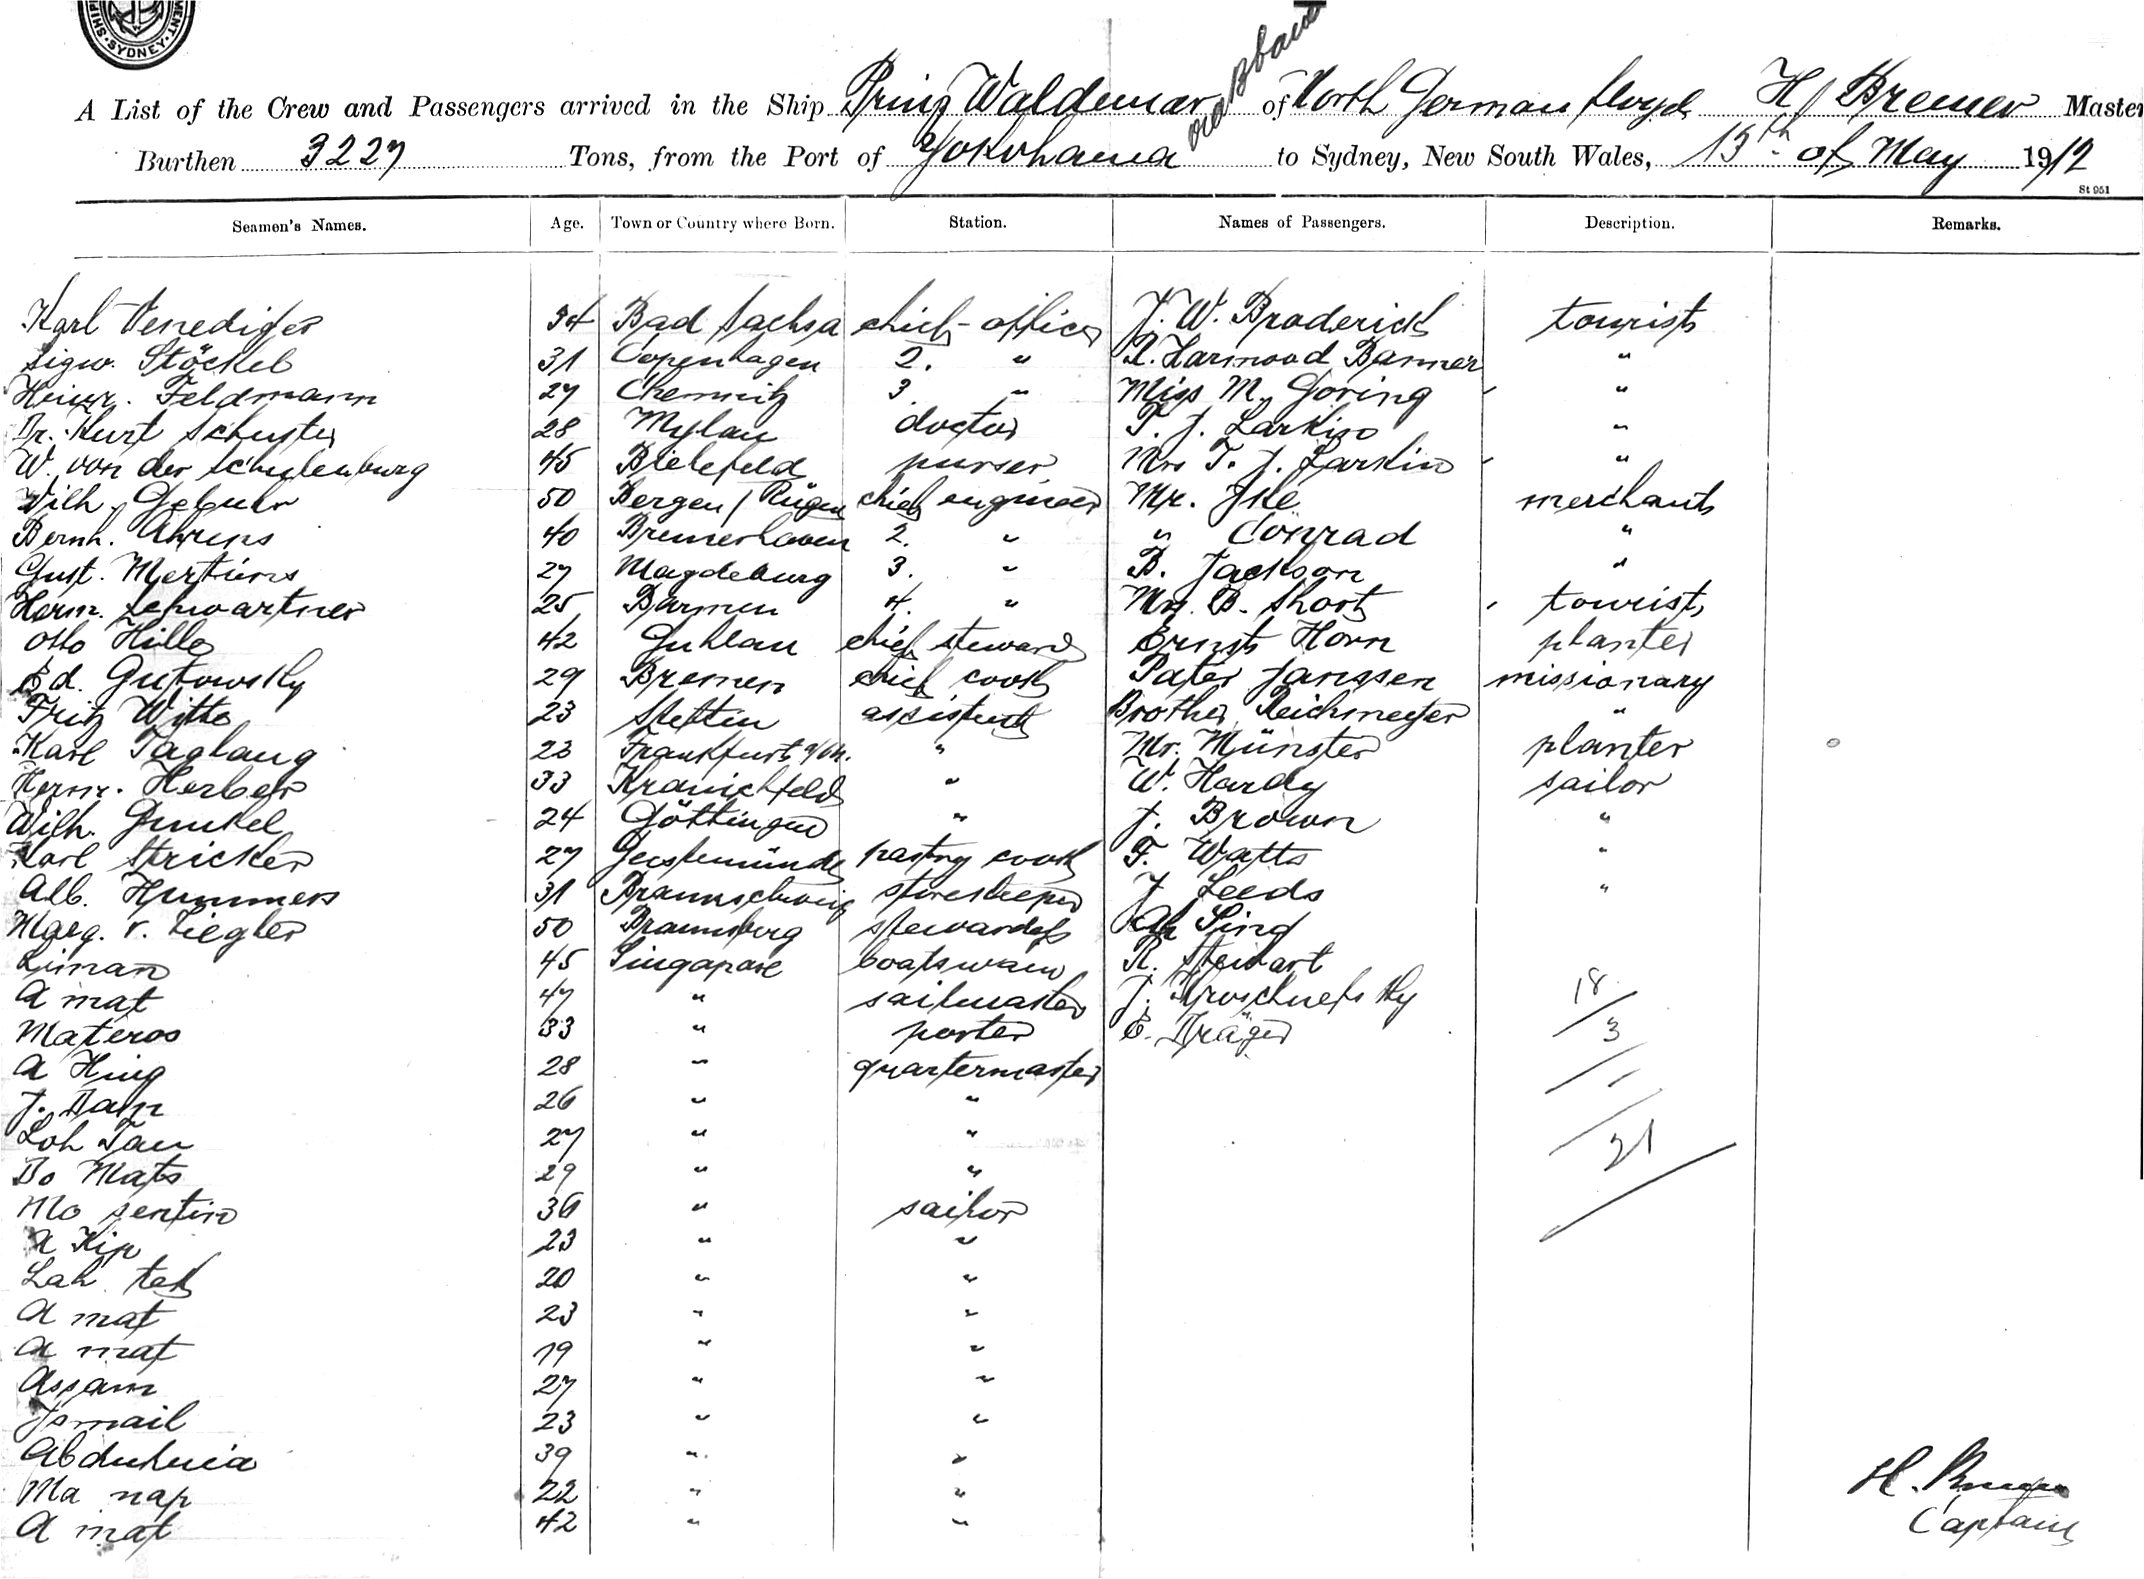 SYDNEY
via Brisbane
A List of the Crew and Passengers arrived in the Ship Prinz Waldemar of North German Lloyd H. Bremer Master
Burthen 3227 Tons, from the Port of Yokohama to Sydney, New South Wales, 13th of May 1912
St 951
Seamen's Names. Age. Town or Country where Born. Station. Names of Passengers. Description. Remarks.
Karl Venediger 34 Bad Sachsa chief officer J. W. Broderick tourist
Sigw. Stöckel 31 Copenhagen 2. " R. Harmood Banner "
Heinr. Feldmann 27 Chemnitz 3. " Miss M. Goring "
Dr. Kurt Schuster 28 Mylau doctor T. J. Larkin "
W. von der Schulenburg 45 Bielefeld purser Mrs T. J. Larkin "
Wilh. Gebuhr 50 Bergen / Rügen chief engineer Mr. Ike merchant
Bernh. Ahrens 40 Bremerhaven 2. " " Conrad "
Gust. Mertins 27 Magdeburg 3. " B. Jackson "
Herm. 25 Barmen 4. " Mrs. B. Short tourist
Otto Hille 42 Guhlau chief steward Ernst Horn planter
Ed. Gutowsky 29 Bremen chief cook Pater Janssen missionary
Fritz Witte 23 Stettin assistent Brother Reichmeyer "
Karl 23 Frankfurt a/M. " Mr. Münster planter
Herm. Herber 33 Kranichfeld " W. Hardy sailor
Wilh. Gunkel 24 Göttingen " J. Brown "
Karl Stricker 27 Geestemünde pastry cook F. Watts "
Alb. Hummers 31 Braunschweig storekeeper J. Leeds "
Marg. v. Ziegler 50 Braunsberg stewardess Ah Sing
Liman 45 Singapore boatswain R. Stewart
A mat 47 " sailmaker J. 18
Materos 33 " porter E. Dräger 3
A Hing 28 " quartermaster
J. 26 " "
Loh Tau 27 " " 21
Do Mats 29 " "
Mo sentin 36 " sailor
A Kip 23 " "
Lah tek 20 " "
A mat 23 " "
A mat 19 " "
Assam 27 " "
Ismail 23 " "
39 " "
Ma nap 22 " " H. Bremer
A mat 42 " " Captain